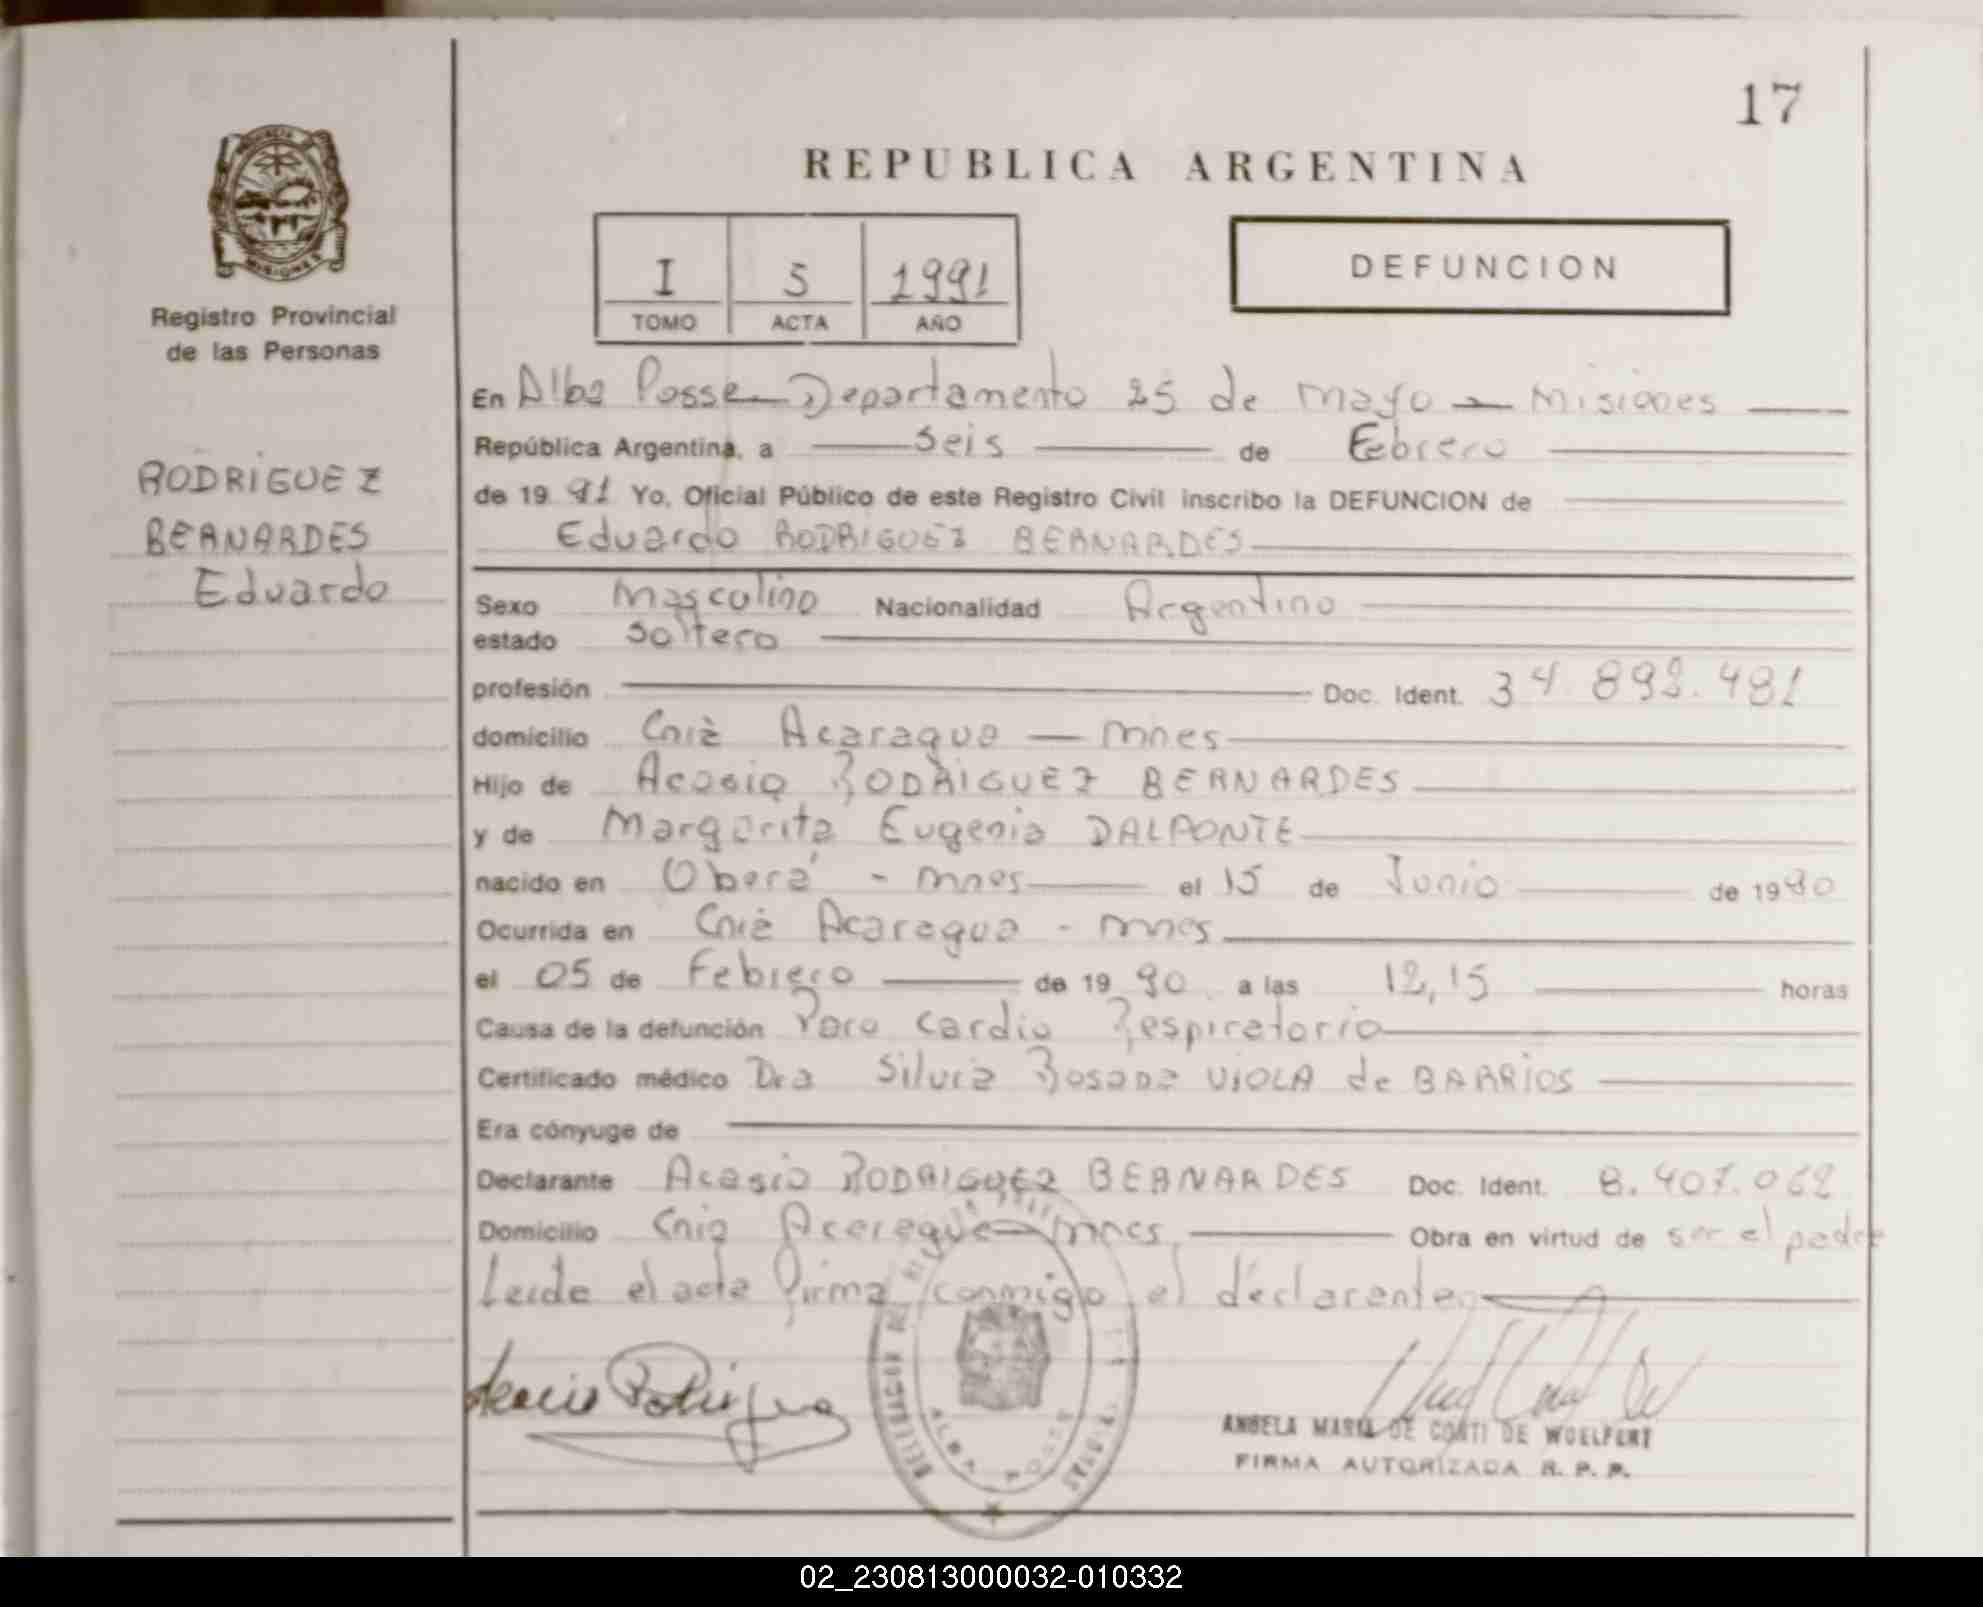 17
REPUBLICA ARGENTINA
MISIONES
Registro Provincial
de las Personas
RODRIGUEZ
BERNARDES
Eduardo
I 5 1991
TOMO ACTA AÑO
DEFUNCION
En Alba Posse Departamento 25 de Mayo - Misiones
República Argentina, a seis de Febrero
de 19 91 Yo, Oficial Público de este Registro Civil inscribo la DEFUNCION de
Eduardo RODRIGUEZ BERNARDES
Sexo Masculino Nacionalidad Argentino
estado soltero
profesión Doc. Ident. 34.892.481
domicilio Cnia Acaragua - Mnes
Hijo de Acasio RODRIGUEZ BERNARDES
y de Margarita Eugenia DALPONTE
nacido en Oberá - Mnes el 15 de Junio de 19
Ocurrida en Cnia Acaragua - Mnes
el 05 de Febrero de 19 90 a las 12,15 horas
Causa de la defunción Paro Cardio Respiratorio
Certificado médico Dra Silvia Rosana VIOLA de BARRIOS
Era cónyuge de
Declarante Acasio RODRIGUEZ BERNARDES Doc. Ident. 8.407.062
Domicilio Cnia Acaragua Mnes Obra en virtud de ser el padre
Leida el acta firma conmigo el declarante
ALBA POSSE
ANGELA MARIA DE CONTI DE WOELFERT
FIRMA AUTORIZADA R. P. P.
02_230813000032-010332